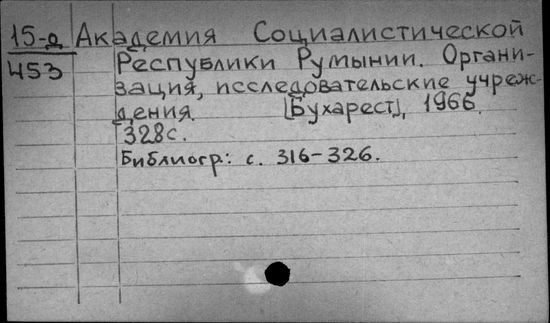 15-д Академия Социалистической
453 Республики Румынии. Органи-
зация, исследовательские учреж-
дения. [Бухарест], 1966.
328с.
Библиогр: с. 316-326.